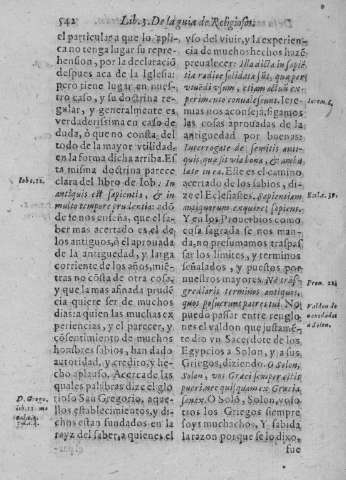 542 Lib. 3. De la guia de Religiosos.
el particular a que lo apli-
ca no tenga lugar su repre-
hension, por la declaració
despues aca de la Iglesia:
pero tiene lugar en nues-
tro caso, y su doctrina re-
gular, y generalmente es
verdaderissima en caso de
duda, ò que no consta, del
todo de la mayor vtilidad,
en la forma dicha arriba. Es
ta misma dotrina parece
clara del libro de Iob. In
antiquis est sapientia, & in
multo tempore prudentia: adó
de se nos enseña, que el sa-
ber mas acertado es, el de
los antiguos, ò el aprouado
de la antiguedad, y larga
corriente de los años, mié-
tras no cósta de otra cosa:
y que la mas afinada prudé
cia quiere ser de muchos
dias: a quien las muchas ex
periencias, y el parecer, y
cósentimiento de muchos
hombres sabios, han dado
autoridad, y credito, y he-
cho aplauso. Acerca de las
quales palabras dize el glo
rioso San Gregorio, aque-
llos establecimientos, y di-
chos estan fundados en la
rayz del saber, a quienes el
Iob. 12.
D. Grego.
vso del viuir, y la experien-
cia de muchos hechos hazé
preualecer: Illa dicta in sapié
tia radice solidata sút, quæ per
viuédi vsum, etiam actuũ ex-
perimento conualescunt. Iere-
mias nos aconseja, sigamos
las cosas aprouadas de la
antiguedad por buenas:
Interrogate de semitis anti-
quis, quæ sit via bona, & ambu
late in ea. Este es el camino
acertado de los sabios, di-
ze el Eclesiastes, Sapientiam
antiquorum exquiret sapiens.
Y en los Prouerbios como
cosa sagrada se nos man-
da, no presumamos traspas
sar los limites, y terminos
señalados, y puestos por
nuestros mayores. Ne trás-
grediaris terminos antiquos,
quos posuerunt patres tui. No
puedo passar entre renglo
nes el valdon que justamé-
te dio vn Sacerdote de los
Egypcios a Solon, y a sus
Griegos, diziendo. O Solon,
Solon, vos Græci semper estis
pueri, nec quisquam ex Græcia
senex. O Soló, Solon, voso-
tros los Griegos siempre
soys muchachos. Y sabida
la razon porque se lo dixo,
Ierem. 6.
Eccl. 39.
Prou. 22.
Valdon de
a Solon.
fue